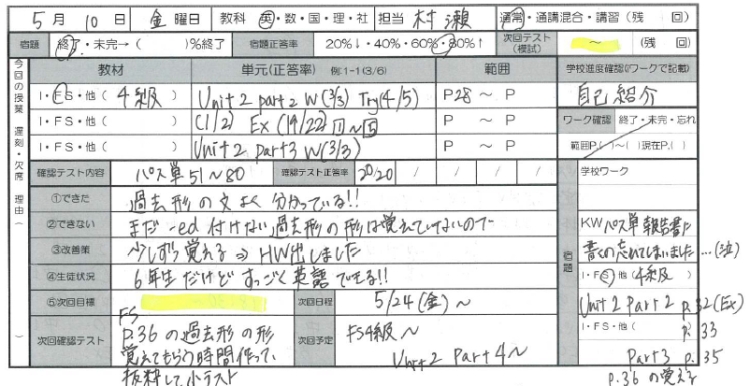 5月 10日 金曜日 教科 英・数・国・理・社 担当 村瀬 通常・通講混合・講習(残 回)
宿題 終了・未完→( )%終了 宿題正答率 20%↓・40%・60%・80%↑ 次回テスト(模試) ～ (残 回)
今回の授業 遅刻・欠席 理由( )
教材 単元(正答率) 例:1-1(3/6) 範囲 学校進度確認(ワークで記載)
I・FS・他( 4級 ) Unit2 part2 W(3/3) Try(4/5) P28 ～ P 自己紹介
I・FS・他( ) C(1/2) Ex (19/22) 1～5 P ～ P ワーク確認 終了・未完・忘れ
I・FS・他( ) Unit2 part3 W(3/3) P ～ P 範囲P.( )～( )現在P.( )
確認テスト内容 パス単51～80 確認テスト正答率 20/20 / / / / 学校ワーク
①できた 過去形の文よく分かっている!!
②できない まだ-ed付けない過去形の形は覚えていないので
③改善策 少しずつ覚える⇒HW出しました
④生徒状況 6年生だけどすっごく英語できる!!
⑤次回目標 次回日程 5/24(金)～
宿題
KWパス単 報告書に
書くの忘れてしまいました…(泣)
I・FS・他( 4級 )
Unit2 Part2 p.32(Ex)
I・FS・他( p.33
Part3 p.35
p.36の覚える
次回確認テスト FS p.36の過去形の形
覚えてもらう時間作って、
抜粋して小テスト
次回予定 FS4級～
Unit2 Part4～